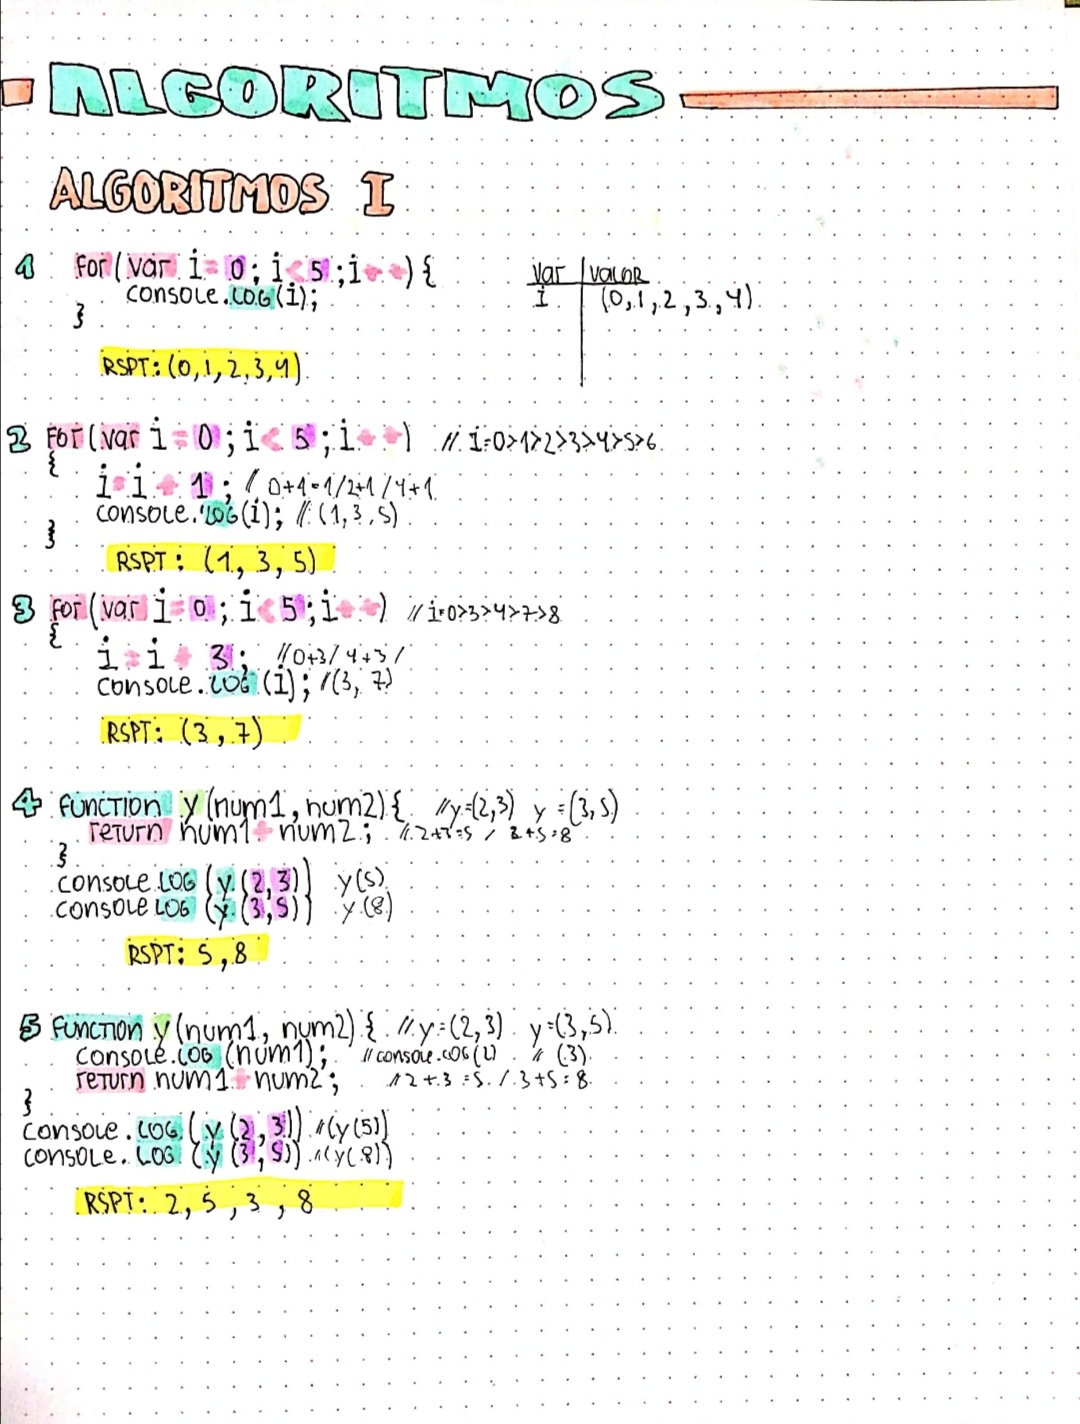 ALGORITMOS
ALGORITMOS I
1 for (var i = 0; i < 5; i++) {
console.log(i);
}
var | valor
i (0,1,2,3,4)
RSPT: (0,1,2,3,4)
2 for (var i = 0; i < 5; i++) // i=0>1>2>3>4>5>6
{
i=i + 1; // 0+1=1/2+1/4+1
console.log(i); // (1,3,5)
}
RSPT: (1, 3, 5)
3 for (var i=0; i<5; i++) // i=0>3>4>7>8
{
i = i + 3; //0+3/4+3/
console.log (i); /(3, 7)
RSPT: (3, 7)
4 function y (num1, num2) { //y=(2,3) y=(3,5)
return num1 + num2; //2+3=5 / 3+5=8
}
console.log (y (2,3)) y(5)
console log (y (3,5)) y(8)
RSPT: 5,8
5 function y (num1, num2) { // y=(2,3) y=(3,5).
console.log (num1); // console.log(2) // (3).
return num1 + num2; //2+3=5. / 3+5=8.
}
console.log (y (2,3)) //(y(5))
console.log (y (3,5)) //(y(8))
RSPT: 2, 5, 3, 8